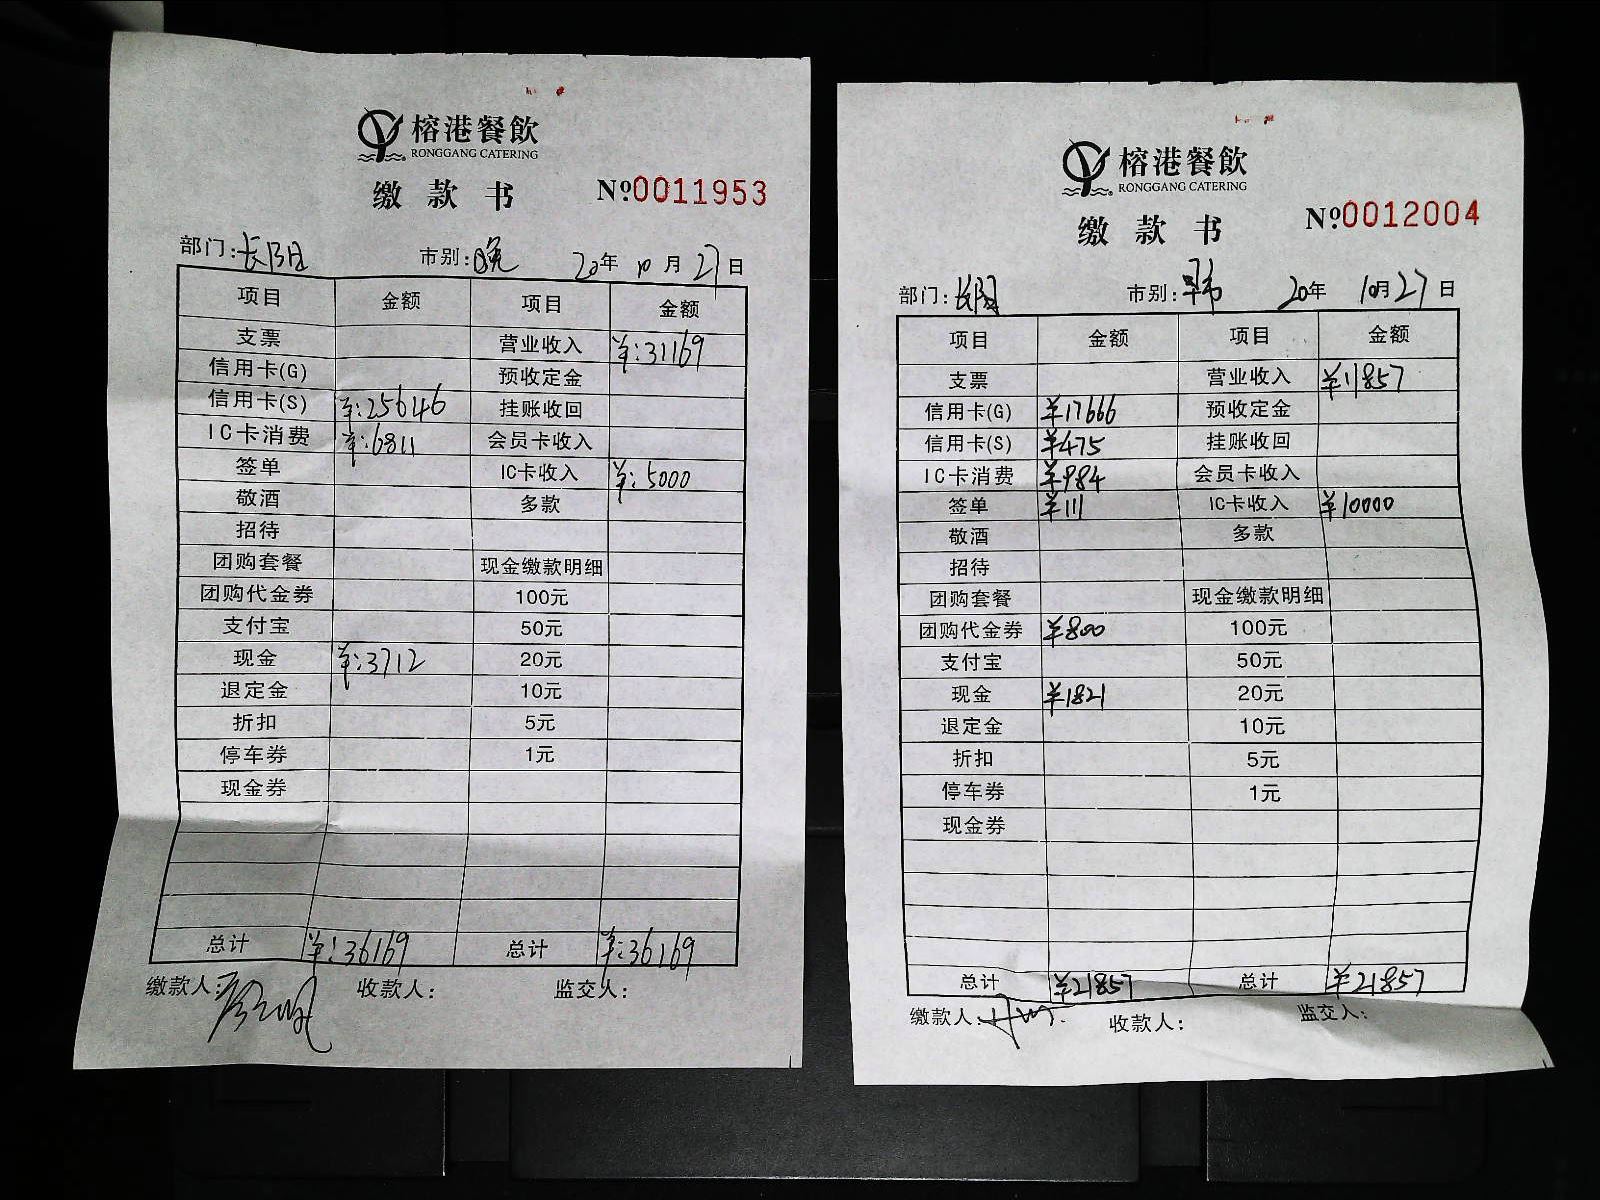 榕港餐飲
RONGGANG CATERING
缴款书 №0011953
部门:长阳 市别:晚 20年10月27日
项目 金额 项目 金额
支票 营业收入 ¥:31169
信用卡(G) 预收定金
信用卡(S) ¥:25646 挂账收回
IC卡消费 ¥:6811 会员卡收入
签单 IC卡收入 ¥:5000
敬酒 多款
招待
团购套餐 现金缴款明细
团购代金券 100元
支付宝 50元
现金 ¥:3712 20元
退定金 10元
折扣 5元
停车券 1元
现金券
总计 ¥:36169 总计 ¥:36169
缴款人: 收款人: 监交人:
榕港餐飲
RONGGANG CATERING
缴款书 №0012004
部门:长阳 市别:早市 20年10月27日
项目 金额 项目 金额
支票 营业收入 ¥11857
信用卡(G) ¥17666 预收定金
信用卡(S) ¥475 挂账收回
IC卡消费 ¥984 会员卡收入
签单 ¥111 IC卡收入 ¥10000
敬酒 多款
招待
团购套餐 现金缴款明细
团购代金券 ¥800 100元
支付宝 50元
现金 ¥1821 20元
退定金 10元
折扣 5元
停车券 1元
现金券
总计 ¥21857 总计 ¥21857
缴款人: 收款人: 监交人: